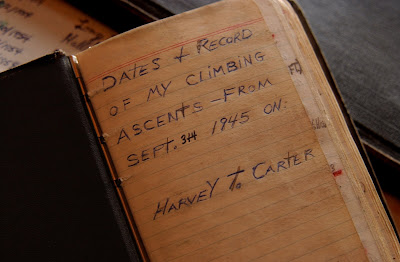 DATES & RECORD
OF MY CLIMBING
ASCENTS — FROM
SEPT. 1945 ON.
HARVEY T. CARTER